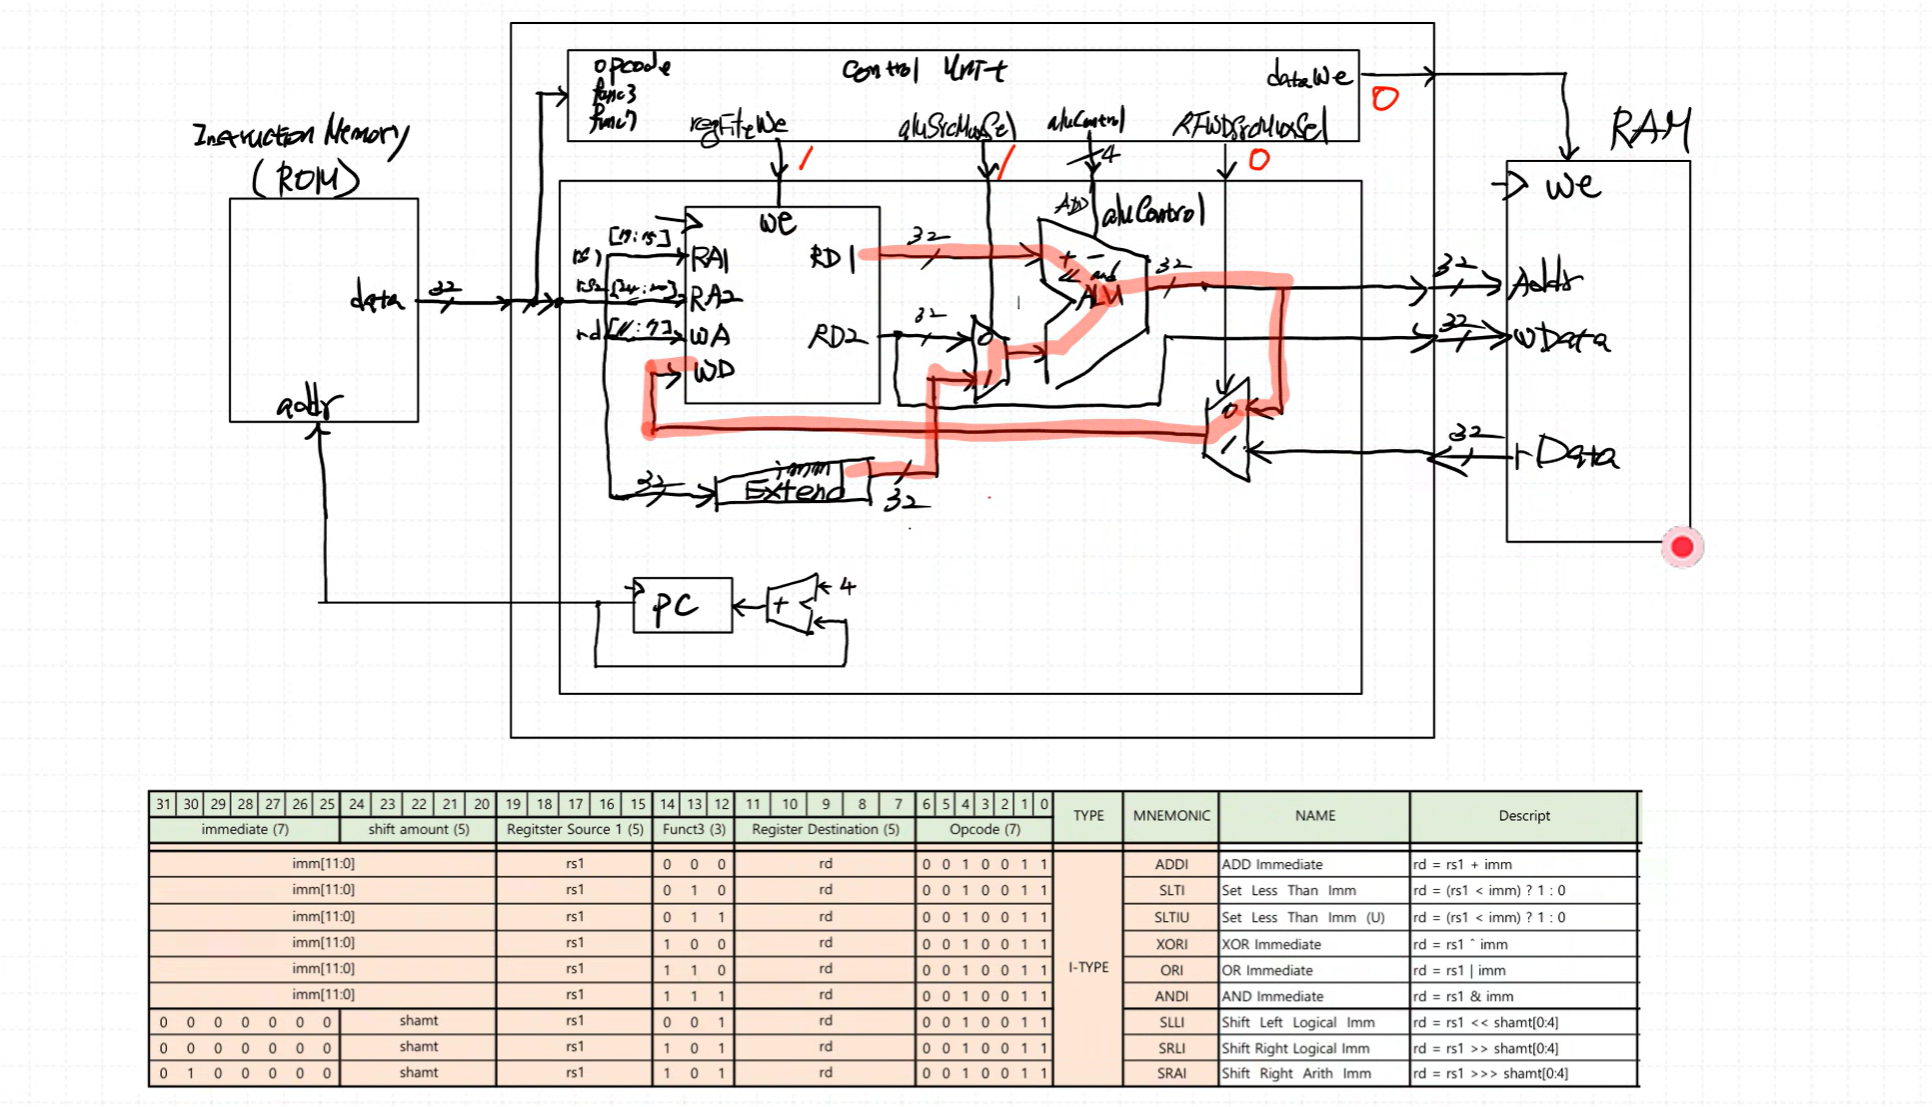 opcode
func3
func7
Control Unit
dataWe
0
regFileWe
aluSrcMuxSel
aluControl
RFWDSrcMuxSel
1
1
4
0
Instruction Memory
(ROM)
RAM
We
We
ADD
aluControl
rs1 [19:15] RA1
RD1
32
+ -
<< and
ALU
32
32
Addr
data
32
rs2 [24:20] RA2
rd [11:7] WA
RD2
32
0
1
32
WData
WD
addr
0
1
32
rData
32
imm
Extend
32
PC
+
4
31 30 29 28 27 26 25 24 23 22 21 20 19 18 17 16 15 14 13 12 11 10 9 8 7 6 5 4 3 2 1 0 TYPE MNEMONIC NAME Descript
immediate (7) shift amount (5) Regitster Source 1 (5) Funct3 (3) Register Destination (5) Opcode (7)
imm[11:0] rs1 0 0 0 rd 0 0 1 0 0 1 1 ADDI ADD Immediate rd = rs1 + imm
imm[11:0] rs1 0 1 0 rd 0 0 1 0 0 1 1 SLTI Set Less Than Imm rd = (rs1 < imm) ? 1 : 0
imm[11:0] rs1 0 1 1 rd 0 0 1 0 0 1 1 SLTIU Set Less Than Imm (U) rd = (rs1 < imm) ? 1 : 0
imm[11:0] rs1 1 0 0 rd 0 0 1 0 0 1 1 XORI XOR Immediate rd = rs1 ^ imm
I-TYPE
imm[11:0] rs1 1 1 0 rd 0 0 1 0 0 1 1 ORI OR Immediate rd = rs1 | imm
imm[11:0] rs1 1 1 1 rd 0 0 1 0 0 1 1 ANDI AND Immediate rd = rs1 & imm
0 0 0 0 0 0 0 shamt rs1 0 0 1 rd 0 0 1 0 0 1 1 SLLI Shift Left Logical Imm rd = rs1 << shamt[0:4]
0 0 0 0 0 0 0 shamt rs1 1 0 1 rd 0 0 1 0 0 1 1 SRLI Shift Right Logical Imm rd = rs1 >> shamt[0:4]
0 1 0 0 0 0 0 shamt rs1 1 0 1 rd 0 0 1 0 0 1 1 SRAI Shift Right Arith Imm rd = rs1 >>> shamt[0:4]